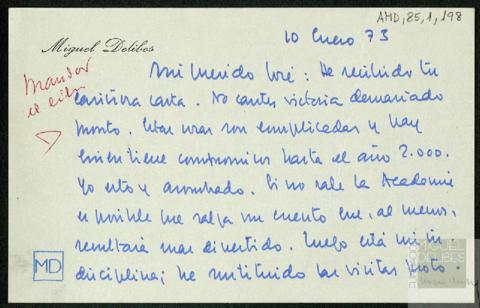 AMD, 85, 1, 198
10 Enero 73
Miguel Delibes
Mandar
el
Mi querido José: He recibido tu
cariñosa carta. No cantes victoria demasiado
pronto. Estas cosas son complicadas y hay
quien tiene compromisos hasta el año 2.000.
Yo estoy asombrado. Si no sale la Academia
es posible que salga un cuento que, al menos,
resultaría mas divertido. Luego está mi in
disciplina; he sustituido las visitas
MD
MIGUEL
DELIBES